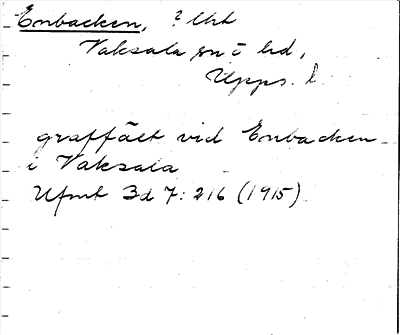 Enbacken, ? Ukt
Vaksala sn o hd,
Upps. l.
graffält vid Enbacken
i Vaksala
Ufmt Bd 7: 216 (1915)